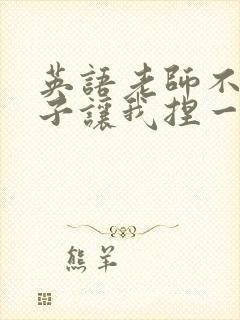 英語老師不
子讓我捏一
熊羊